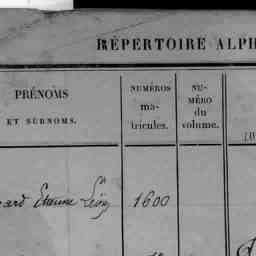 RÉPERTOIRE ALPH
PRÉNOMS
ET SURNOMS.
NUMÉROS
ma-
tricules.
NU-
MÉRO
du
volume.
ard Etienne Léon 1600